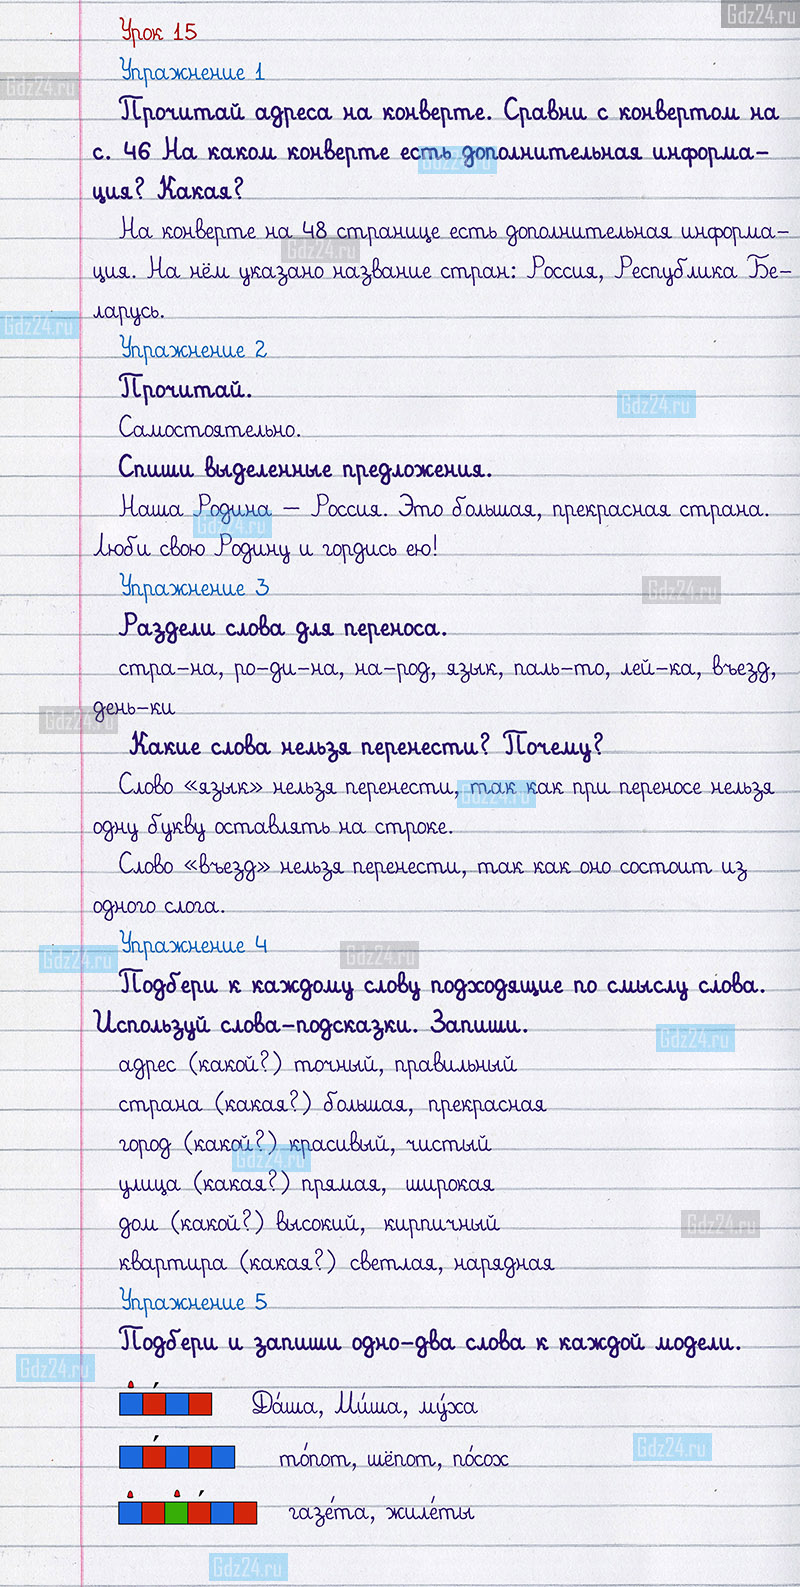 Gdz24.ru
Урок 15
Упражнение 1
Gdz24.ru
Прочитай адреса на конверте. Сравни с конвертом на
с. 46 На каком конверте есть дополнительная информа-
Gdz24.ru
ция? Какая?
На конверте на 48 странице есть дополнительная информа-
Gdz24.ru
ция. На нём указано название стран: Россия, Республика Бе-
ларусь.
Gdz24.ru
Упражнение 2
Прочитай.
Gdz24.ru
Самостоятельно.
Спиши выделенные предложения.
Наша Родина — Россия. Это большая, прекрасная страна.
Gdz24.ru
Люби свою Родину и гордись ею!
Упражнение 3
Gdz24.ru
Раздели слова для переноса.
стра-на, ро-ди-на, на-род, язык, паль-то, лей-ка, въезд,
день-ки
Gdz24.ru
Какие слова нельзя перенести? Почему?
Слово «язык» нельзя перенести, так как при переносе нельзя
Gdz24.ru
одну букву оставлять на строке.
Слово «въезд» нельзя перенести, так как оно состоит из
одного слога.
Упражнение 4
Gdz24.ru
Gdz24.ru
Подбери к каждому слову подходящие по смыслу слова.
Используй слова-подсказки. Запиши.
Gdz24.ru
адрес (какой?) точный, правильный
страна (какая?) большая, прекрасная
город (какой?) красивый, чистый
Gdz24.ru
улица (какая?) прямая, широкая
дом (какой?) высокий, кирпичный
Gdz24.ru
квартира (какая?) светлая, нарядная
Упражнение 5
Подбери и запиши одно-два слова к каждой модели.
Gdz24.ru
Да́ша, Ми́ша, му́ха
Gdz24.ru
то́пот, шёпот, по́сох
газе́та, жиле́ты
Gdz24.ru